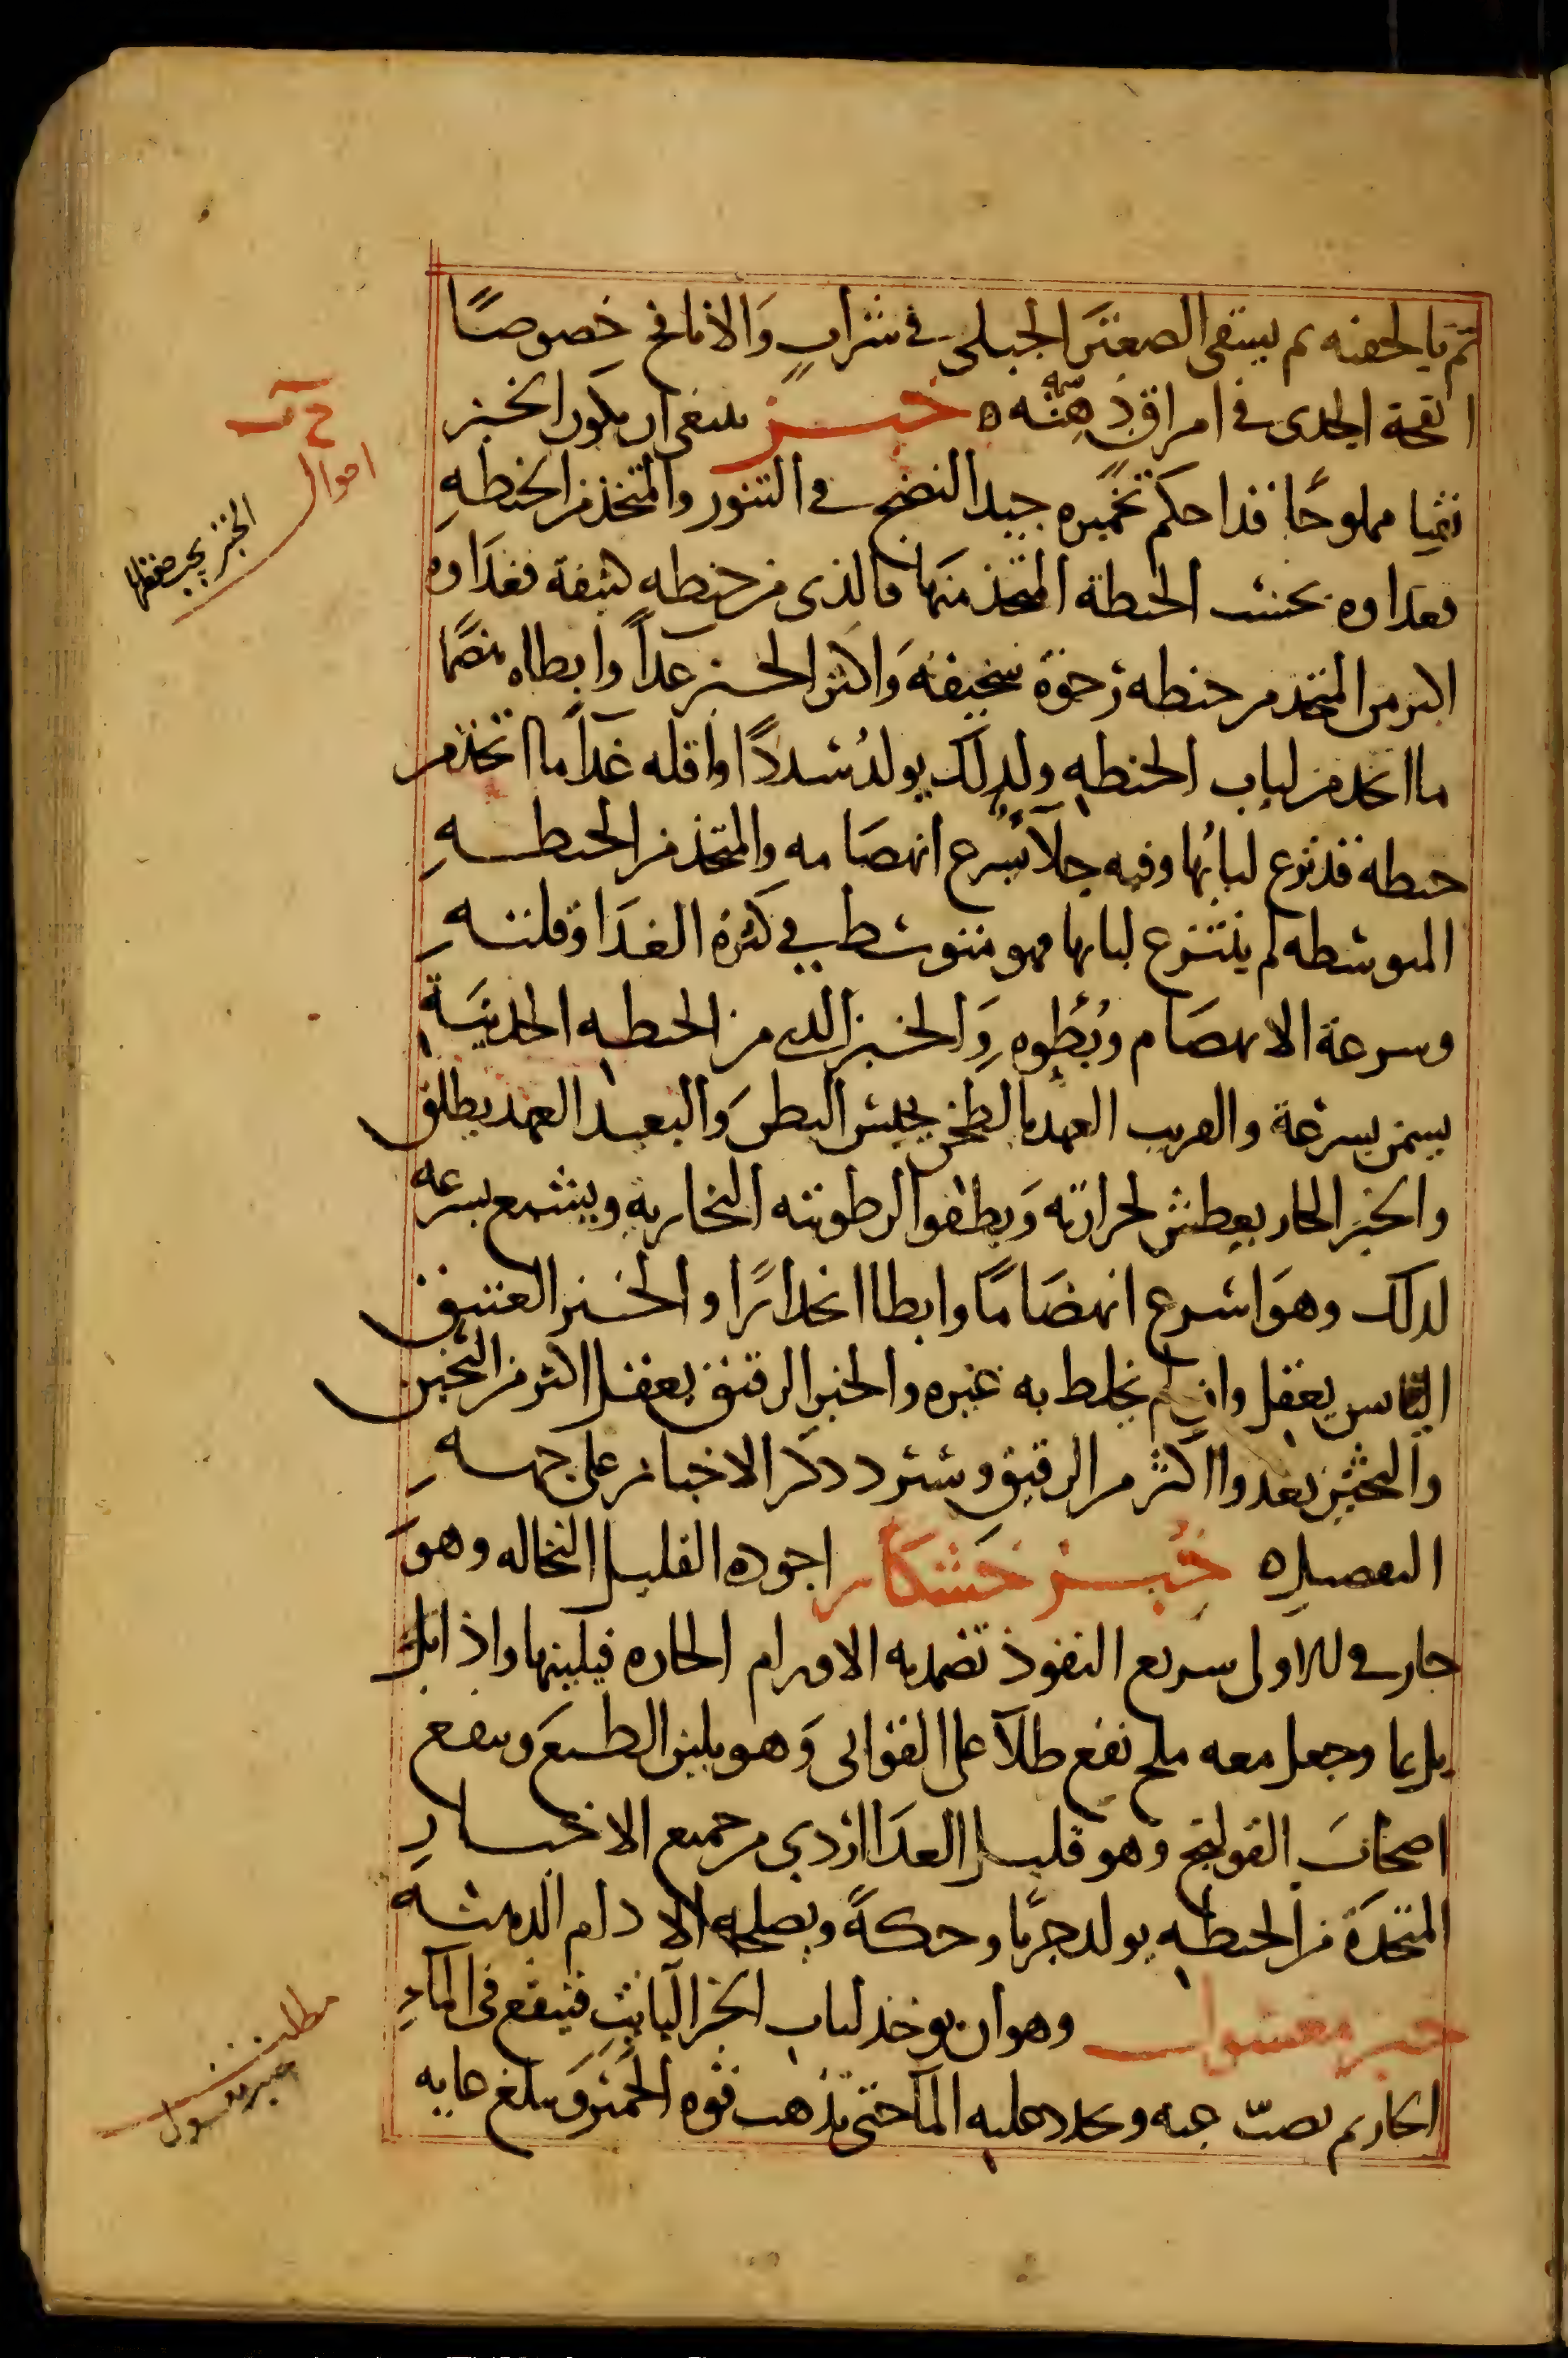 ثم بالحقنه ثم يسقى الصعتر الجبلى فى شراب والانافح خصوصًا
انفحة الجدى فى امراق دهنه ه خبز ينبغى ان يكون الخبز
نقيا مملوحًا قد احكم تخميره جيد النضج فى التنور والمتخذ من الحنطه
فغداوه بحسب الحنطة المتخذ منها فالذى من حنطه كثيفة فغداوه
اكثر من المتخذ من حنطه رخوة سخيفه واكثر الخبز غدآ وابطاه هضمًا
ما اتخذ من لباب الحنطه ولذلك يولد سددًا واقله غدآ ما اتخذ من
حنطه قد نزع لبابها وفيه جلآ يسرع انهضامه والمتخذ من الحنطه
المتوسطه لم ينتزع لبابها فهو متوسط فى كثرة الغدا وقلته
وسرعة الانهضام وبُطوه والخبز الذى من الحنطه الحديثة
يسمن بسرعة والقريب العهد بالطحن يحبس البطن والبعيد العهد يطلق
والخبز الحار يعطش لحرارته ويطفوا لرطوبته البخاريه ويشبع بسرعه
لذلك وهو اسرع انهضامًا وابطا انحدارًا والخبز العتيق
اليابس يعقل وان لم يخلط به غيره والخبز الرقيق يعقل اكثر من الثخين
والثخين يغدوا اكثر من الرقيق وسنورد ذكر الاخباز على جهه
التفصيل ه خبز خشكار اجوده القليل النخاله وهو
حار فى الاولى سريع النفوذ تضمد به الاورام الحاره فيلينها واذا بل
بل بما وجعل معه ملح نفع طلآ على القوابى وهو يلين الطبع وينفع
اصحاب القولنج وهو قليل الغدا اردى من جميع الاخباز
المتخذة من الحنطه يولد جربًا وحكةً ويصلحه الادام الدسمه
خبز مغسول وهو ان يوخذ لباب الخبز اليابس فينقع فى المآء
الحار ثم يصبّ عنه ويجدد عليه المآ حتى تذهب قوه الخمير ويبلغ غايه
احوال
الخبز يجب حفظها
مطلب
خبز مغسول